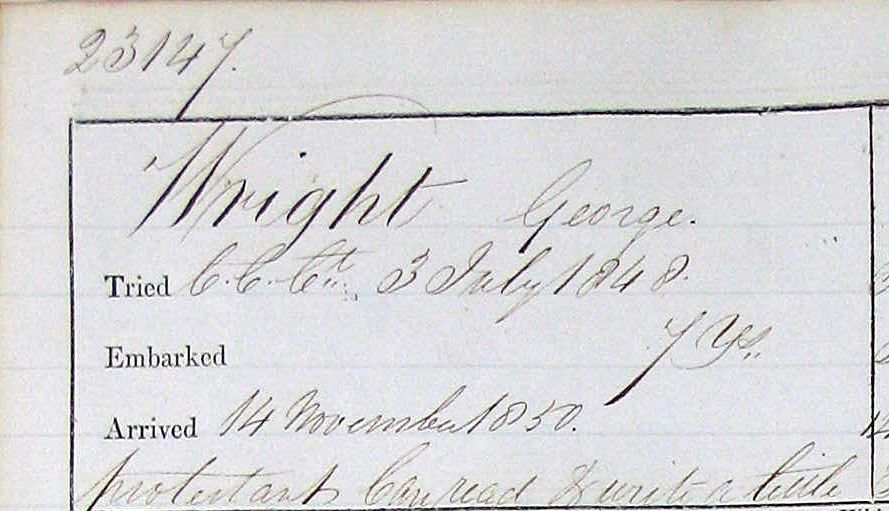 23147.
Wright George.
Tried C. C. Ct. 3 July 1848.
7 Ys.
Embarked
Arrived 14 November 1850.
protestant Can read & write a little